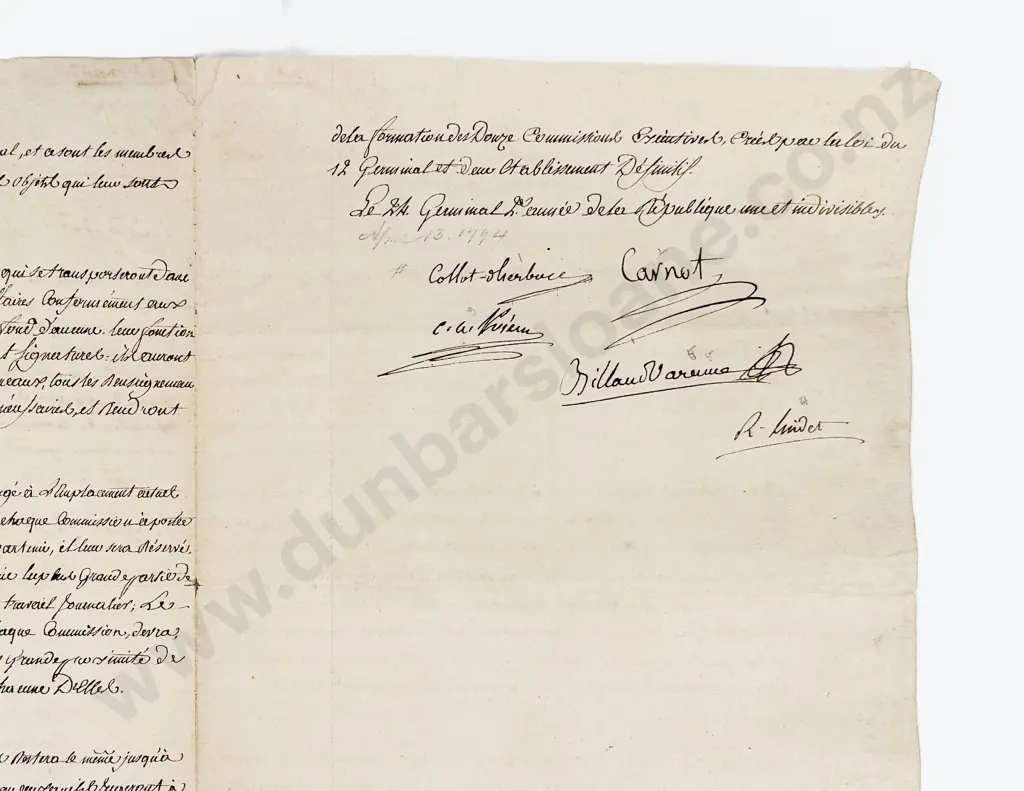 al, et à sont les membres
objets qui leur sont
qui se transporteront dans
faires Conformément aux
fond d'aucune. leur fonction
t Signatures: ils auront
reaux, tous les Renseignemen
écessaires, et Rendront
gé à L'Emplacement actuel
chaque Commission à portée
artenir, et leur sera Réservé
la plus Grande partie de
travail Journalier; Le
aque Commission, devra,
Grande proximité de
hacune D'Elles.
Restera le même jusqu'à
de la formation des Douze Commissions Exécutives, Créés par la loi du
12 Germinal et de leur Etablissement Définitif.
Le 24 Germinal 2e année de la République une et indivisible.
April 13. 1794
Collot-d'herbois Carnot
c. a. Prieur
Billaud Varenne
R. Lindet
www.dunbarsloane.co.nz